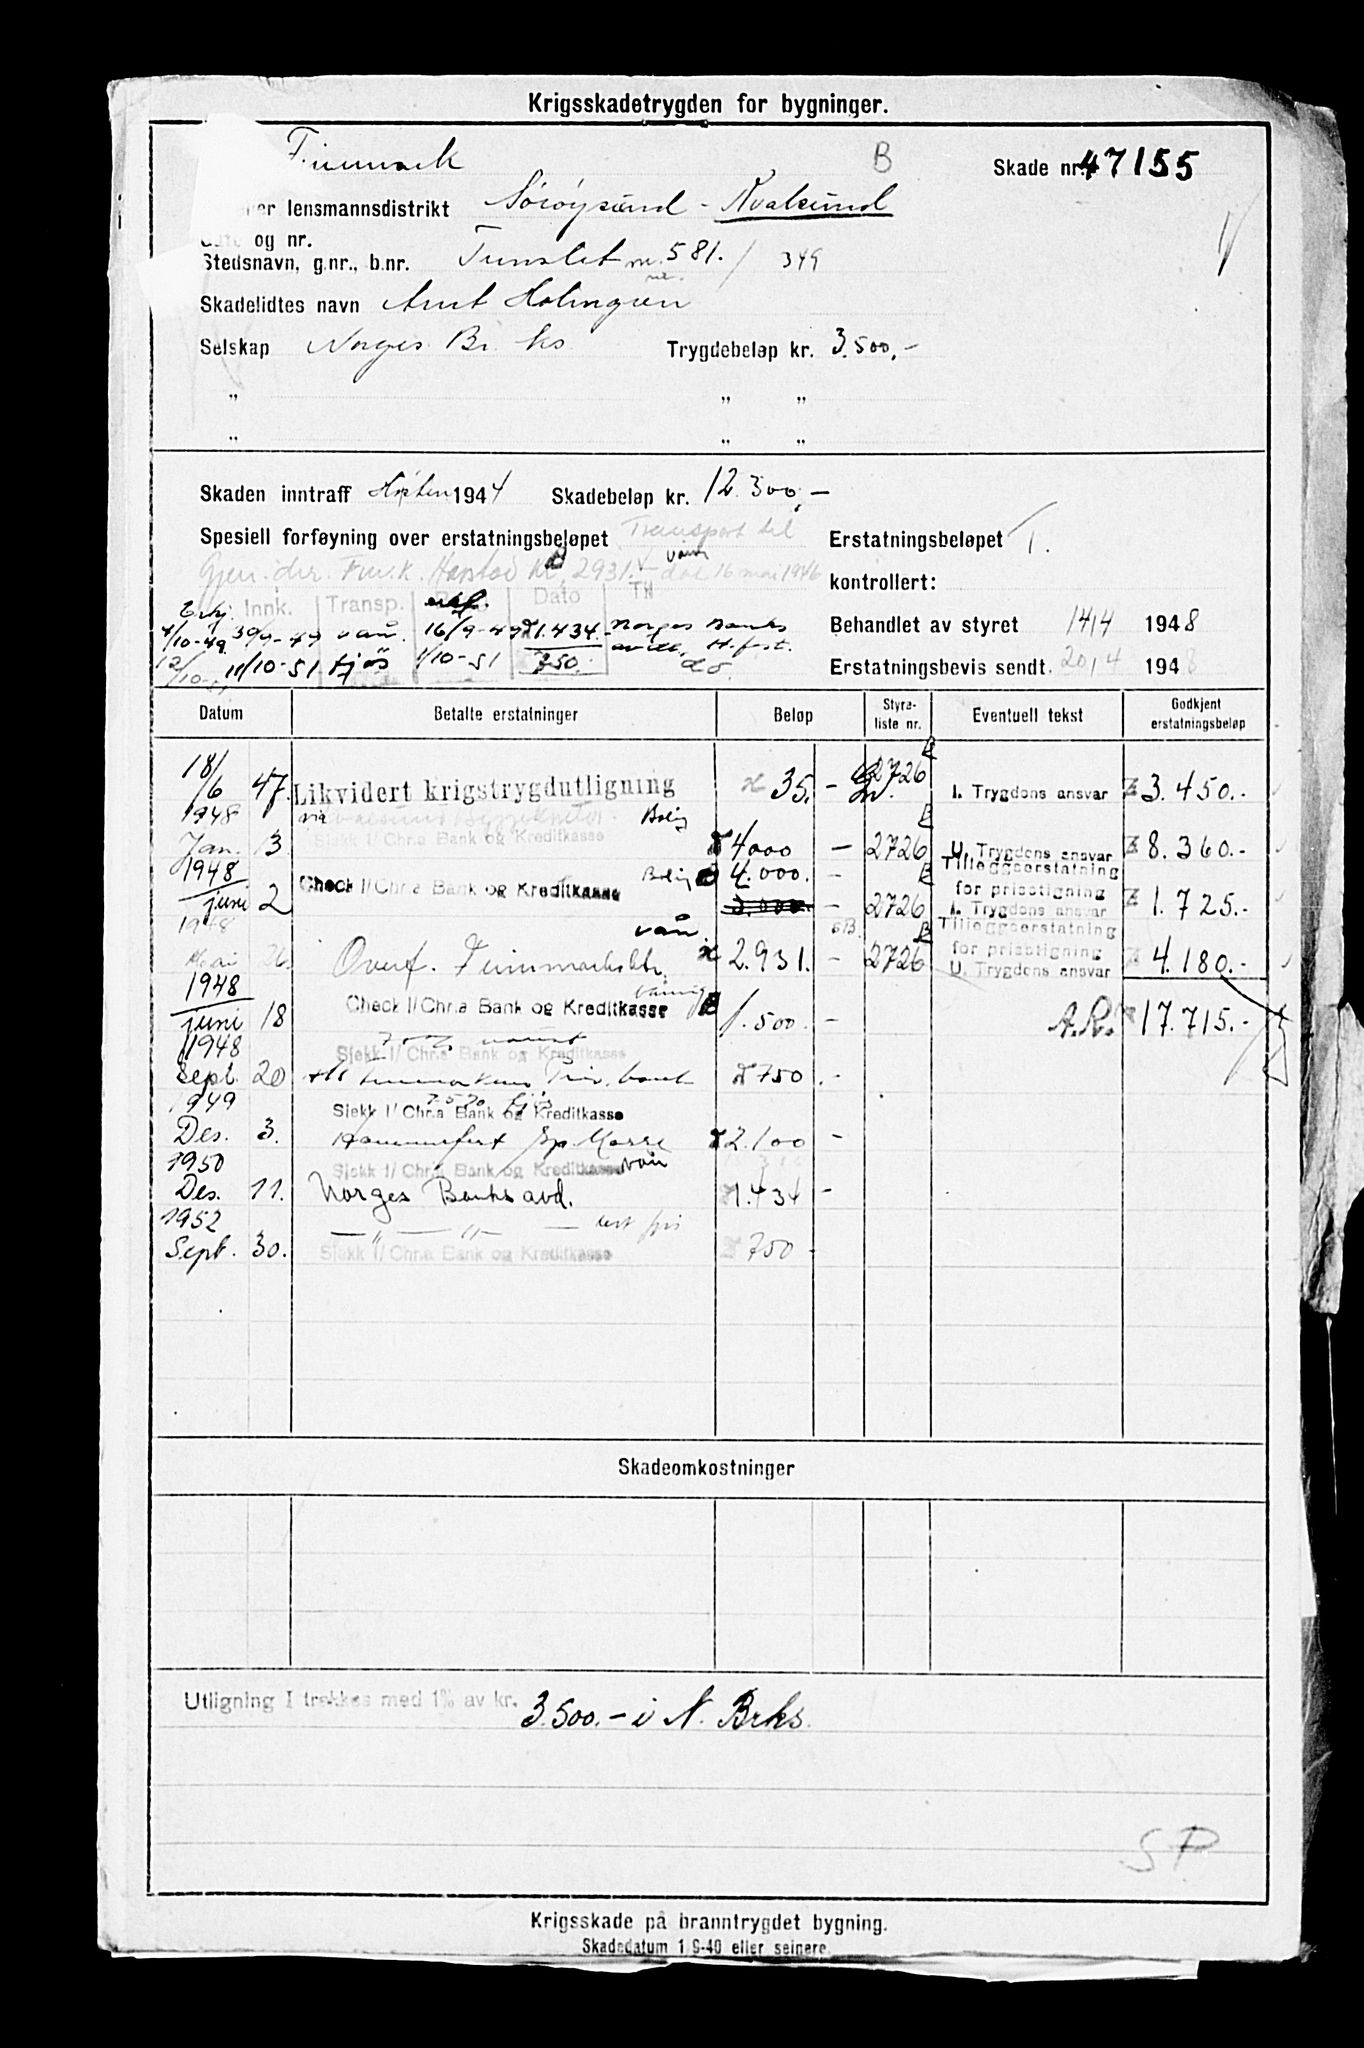 Krigsskadetrygden for bygninger.
Finnmark B Skade nr. 47155
eller lensmannsdistrikt Sørøysund - Kvalsund
og nr.
Stedsnavn, g.nr., b.nr. nr. 581. / 349
Skadelidtes navn Arnt Holmgren
Selskap Norges Br. ks. Trygdebeløp kr. 3.500,-
" " "
" " "
Skaden inntraff Høsten 1944 Skadebeløp kr. 12.300,-
Spesiell forføyning over erstatningsbeløpet Transport til Erstatningsbeløpet T.
Gjen. dir. Harstad kr. 2931.- dat 16 mai 1946 kontrollert:
Innk. Transp. Dato
4/10-49 30/9-49 vån. 16/9-49 1.434.- Norges Banks
avd. H.fest. Behandlet av styret 14/4 1948
11/10-51 fjøs 1/10-51 750.- do. Erstatningsbevis sendt 20/4 1948
Datum Betalte erstatninger Beløp Styre-liste nr. Eventuell tekst Godkjent erstatningsbeløp
18/6 47. Likvidert krigstrygdutligning 35.- 2726 I. Trygdens ansvar 3.450.-
1948 Bolig
Jan. 3 Chr.a Bank og Kreditkasse 4000 - 2726 U. Trygdens ansvar 8.360.-
1948 Bolig 4.000.- Tilleggserstatning
juni 2 Check / Chr.a Bank og Kreditkasse 3.000.- 2726 for prisstigning
I. Trygdens ansvar 1.725.-
1948 vån Tilleggserstatning
Mai 26 Overf. Finnmarksktr. 2.931.- 2726 for prisstigning
U. Trygdens ansvar 4.180.-
1948
juni 18 Check / Chr.a Bank og Kreditkasse 1.500.- 17.715.-
1948 Sjekk / Chr.a Bank og Kreditkasse
Sept. 20 750.-
1949 Sjekk / Chr.a Bank og Kreditkasse
Des. 3. Hammerfest Sp. 2.100 -
1950 Sjekk / Chr.a Bank og Kreditkasse vån
Des. 11. Norges Banks avd. 1.434 -
1952 — " — " —
Sept. 30. Sjekk / Chr.a Bank og Kreditkasse 750 -
Skadeomkostninger
Utligning I trekkes med 1% av kr. 3.500.- i N. Brks.
SP
Krigsskade på branntrygdet bygning.
Skadedatum 1/9-40 eller seinere